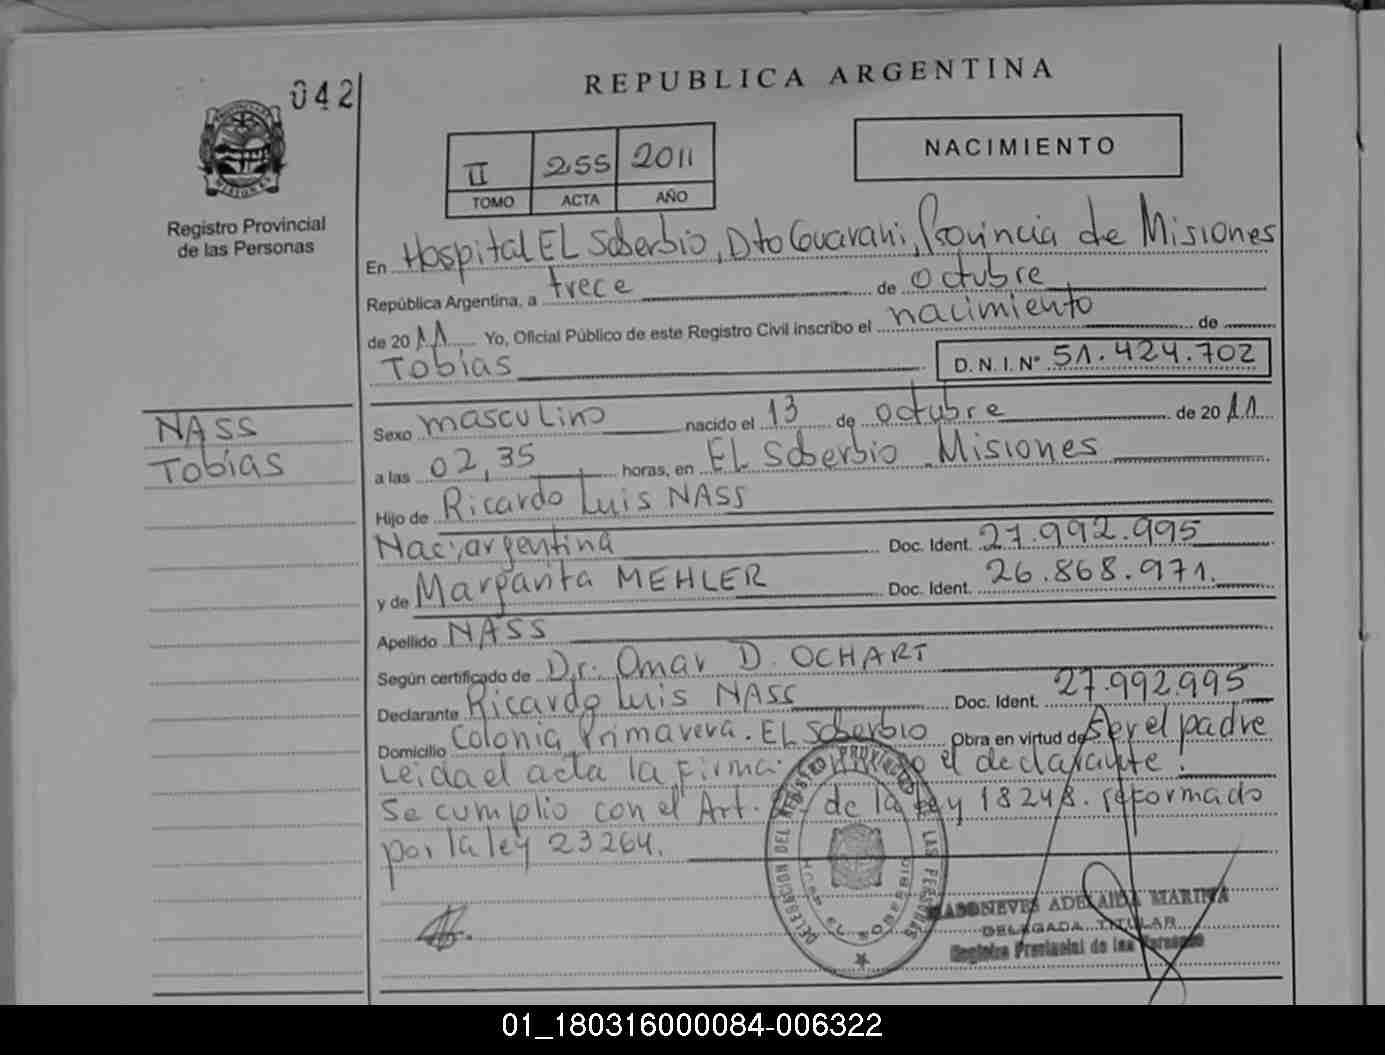 042
REPUBLICA ARGENTINA
II 255 2011
TOMO ACTA AÑO
NACIMIENTO
Registro Provincial
de las Personas
En Hospital EL Soberbio, Dto Guarani, Provincia de Misiones
República Argentina, a trece de octubre
de 2011 Yo, Oficial Público de este Registro Civil inscribo el nacimiento de
Tobías D.N.I. Nº 51.424.702
NASS
Tobías
Sexo masculino nacido el 13 de octubre de 2011
a las 02,35 horas, en EL Soberbio Misiones
Hijo de Ricardo Luis NASS
Nac: argentina Doc. Ident. 27.992.995
y de Margarita MEHLER Doc. Ident. 26.868.971.
Apellido NASS
Según certificado de Dr. Omar D. OCHART
Declarante Ricardo Luis NASS Doc. Ident. 27.992.995
Domicilio Colonia Primavera. EL Soberbio Obra en virtud de ser el padre
Leida el acta la firma el declarante.
Se cumplio con el Art. de la ley 18248. reformado
por la ley 23264.
DELEGACION DEL REGISTRO PROVINCIAL LAS PERSONAS
ADELAIDA MARINA
DELEGADA TITULAR
Registro Provincial de las Personas
01_180316000084-006322